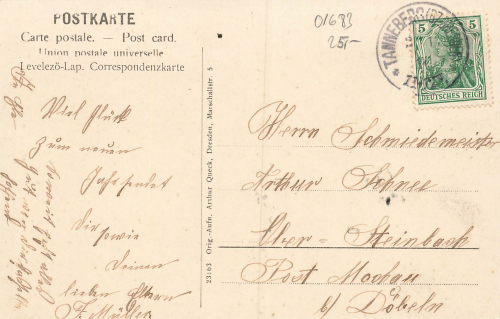 POSTKARTE
Carte postale. — Post card.
Union postale universelle
Levelezō-Lap. Correspondenzkarte
01683
25,-
TANNEBERG
5 5
DEUTSCHES REICH
Viel Glück
zum neuen
Jahr sendet
Dir sowie
Deinen
lieben Eltern
F. Müller
23163 Orig.-Aufn. Arthur Queck, Dresden, Marschallstr. 5
Herrn Schmiedemeister
Arthur Schnee
Ober-Steinbach
Post Mochau
b/ Döbeln